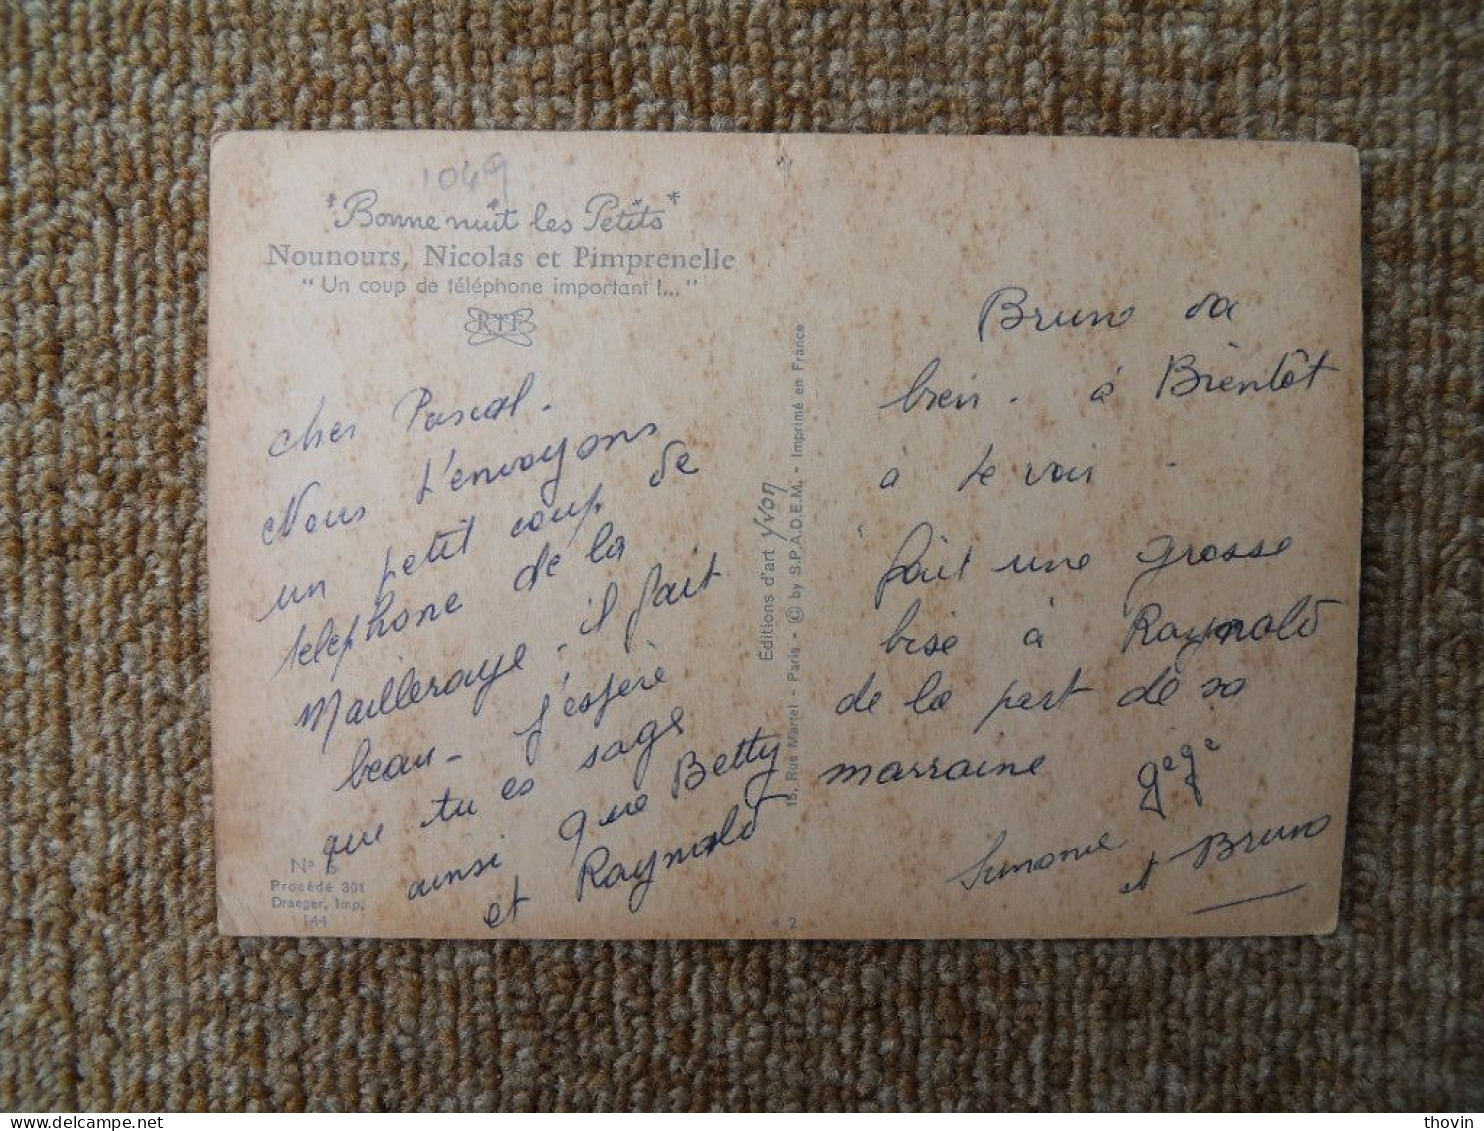 1049
"Bonne nuit les Petits"
Nounours, Nicolas et Pimprenelle
"Un coup de téléphone important !..."
RTF
cher Pascal.
Nous t'envoyons
un petit coup de
telephone de la
Mailleraye - il fait
beau - j'espère
que tu es sage
ainsi que Betty
et Raynald
N° 6
Procédé 301
Draeger, Imp.
144
Editions d'art Yvon
15, Rue Martel - Paris - © by S.P.A.D.E.M. - Imprimé en France
4 2
Bruno va
bien. à Bientôt
à te voir.
fait une grosse
bise à Raynald
de la part de sa
marraine gégé
Simone
et Bruno
thovin